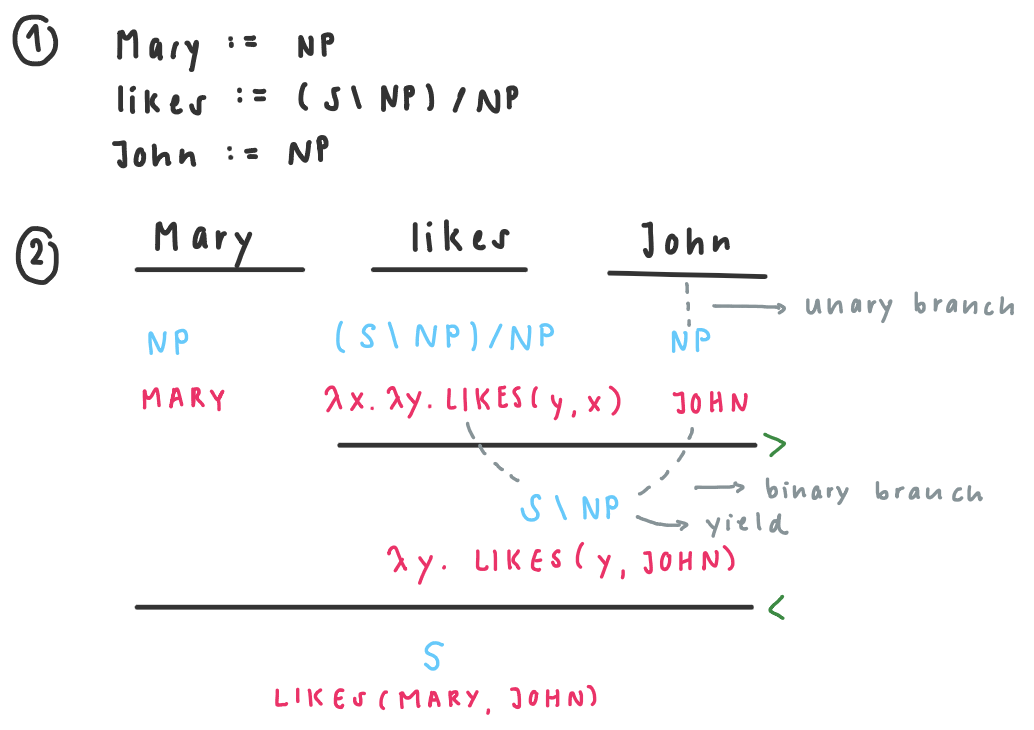 ① Mary := NP
likes := (S\NP)/NP
John := NP
② Mary likes John
unary branch
NP (S\NP)/NP NP
MARY λx. λy. LIKES(y, x) JOHN
>
binary branch
S\NP
yield
λy. LIKES(y, JOHN)
<
S
LIKES(MARY, JOHN)